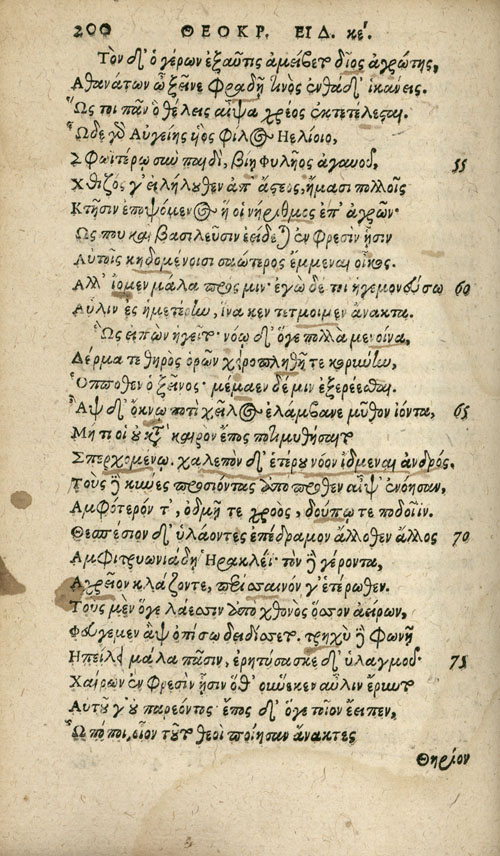 200 ΘΕΟΚΡ. ΕΙΔ. κέ.
Τὸν δ' ὁ γέρων ἐξαῦτις ἀμείβετο δῖος ἀγρώτης,
Ἀθανάτων ὦ ξεῖνε φραδῇ τινὸς ἐνθάδ' ἱκάνεις.
Ὥς τοι πᾶν ὃ θέλεις αἶψα χρέος ἐκτετέλεσται.
Ὧδε γὰρ Αὐγείης υἱὸς φίλος Ἠελίοιο,
Σφωιτέρῳ σὺν παιδὶ, βίῃ Φυλῆος ἀγαυοῦ, 55
Χθιζός γ' εἰλήλουθεν ἀπ' ἄστεος, ἤμασι πολλοῖς
Κτῆσιν ἐποψόμενος ἥ οἱ νήριθμος ἐπ' ἀγρῶν·
Ὥς που καὶ βασιλεῦσιν ἐείδεται ἐν φρεσὶν ᾗσιν
Αὐτοῖς κηδομένοισι σαώτερος ἔμμεναι οἶκος.
Ἀλλ' ἴομεν μάλα πρός μιν· ἐγὼ δέ τοι ἡγεμονεύσω 60
Αὖλιν ἐς ἡμετέρην, ἵνα κεν τέτμοιμεν ἄνακτα.
Ὣς εἰπὼν ἡγεῖτο· νόῳ δ' ὅγε πολλὰ μενοίνα,
Δέρμα τε θηρὸς ὁρῶν χειροπληθῆ τε κορύνην,
Ὁππόθεν ὁ ξεῖνος· μέμαεν δέ μιν ἐξερέεσθαι.
Ἂψ δ' ὄκνῳ ποτὶ χεῖλος ἐλάμβανε μῦθον ἰόντα, 65
Μή τι οἱ οὐ κατὰ καιρὸν ἔπος ποτιμυθήσαιτο
Σπερχομένῳ. χαλεπὸν δ' ἑτέρου νόον ἴδμεναι ἀνδρός.
Τοὺς δὲ κύνες προσιόντας ἀπόπροθεν αἶψ' ἐνόησαν,
Ἀμφότερόν τ', ὀδμῇ τε χροὸς, δούπῳ τε ποδοῖιν.
Θεσπέσιον δ' ὑλάοντες ἐπέδραμον ἄλλοθεν ἄλλος 70
Ἀμφιτρυωνιάδῃ Ἡρακλέϊ· τὸν δὲ γέροντα,
Ἀχρεῖον κλάζοντε, περίσσαινόν γ' ἑτέρωθεν.
Τοὺς μὲν ὅγε λάεσσιν ἀπὸ χθονὸς ὅσσον ἀείρων,
Φευγέμεν ἂψ ὀπίσω δειδίσσετο. τρηχὺ δὲ φωνῇ
Ἠπείλει μάλα πᾶσιν, ἐρητύσασκε δ' ὑλαγμοῦ· 75
Χαίρων ἐν φρεσὶν ᾗσιν ὅθ' οὕνεκεν αὖλιν ἔρυντο
Αὐτοῦ γ' οὐ παρεόντος· ἔπος δ' ὅγε τοῖον ἔειπεν,
Ὢ πόποι, οἷον τοῦτο θεοὶ ποίησαν ἄνακτες
Θηρίον